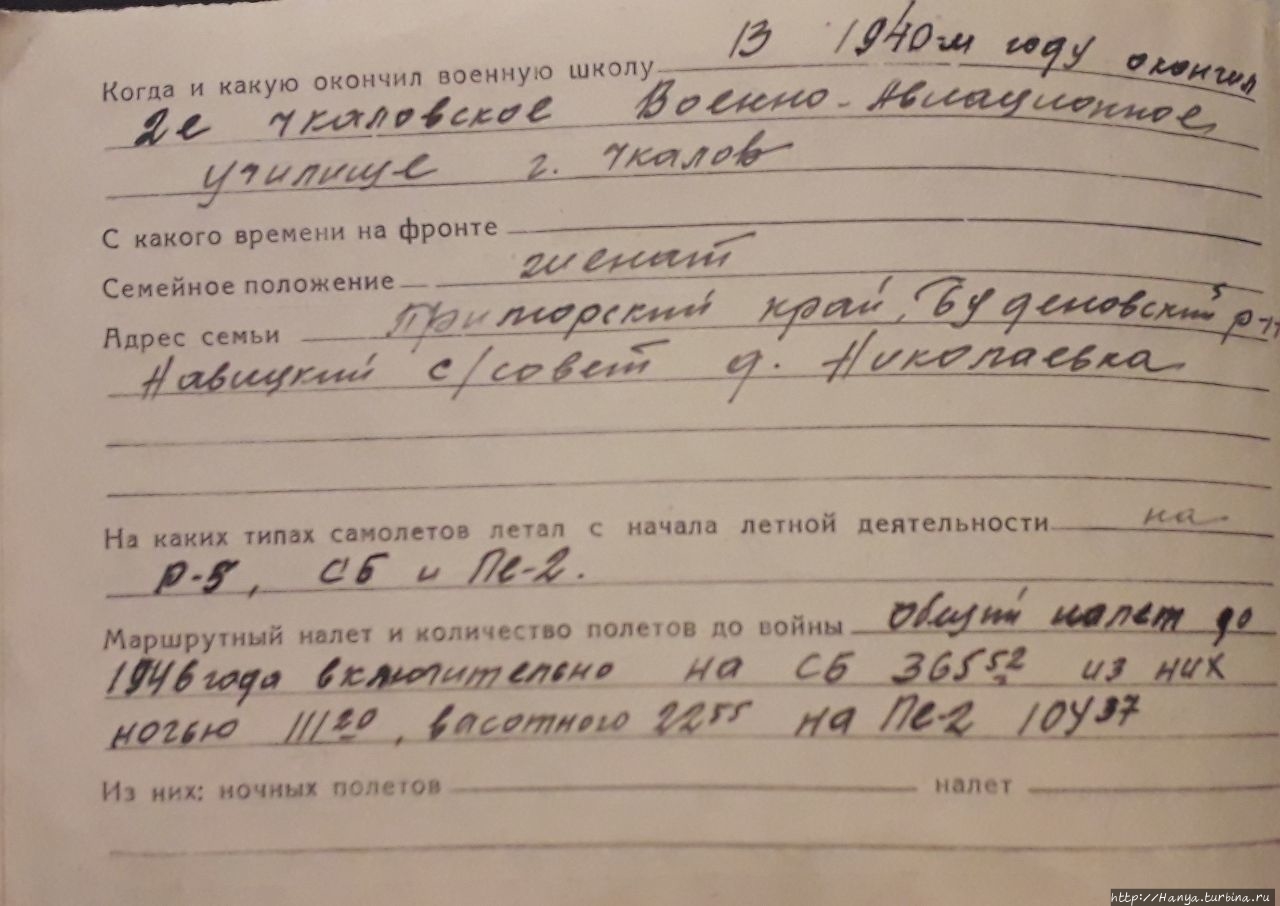 Когда и какую окончил военную школу В 1940-м году окончил
2е Чкаловское Военно-Авиационное
училище г. Чкалов
С какого времени на фронте
Семейное положение женат
Адрес семьи Приморский край, Буденовский р-н
Навицкий с/совет д. Николаевка
На каких типах самолетов летал с начала летной деятельности на
Р-5, СБ и Пе-2.
Маршрутный налет и количество полетов до войны Общий налет до
1946 года включительно на СБ 365 52 из них
ночью 111 20, васотного 22 55 на Пе-2 104 37
Из них: ночных полетов налет
http://Hanya.turbina.ru